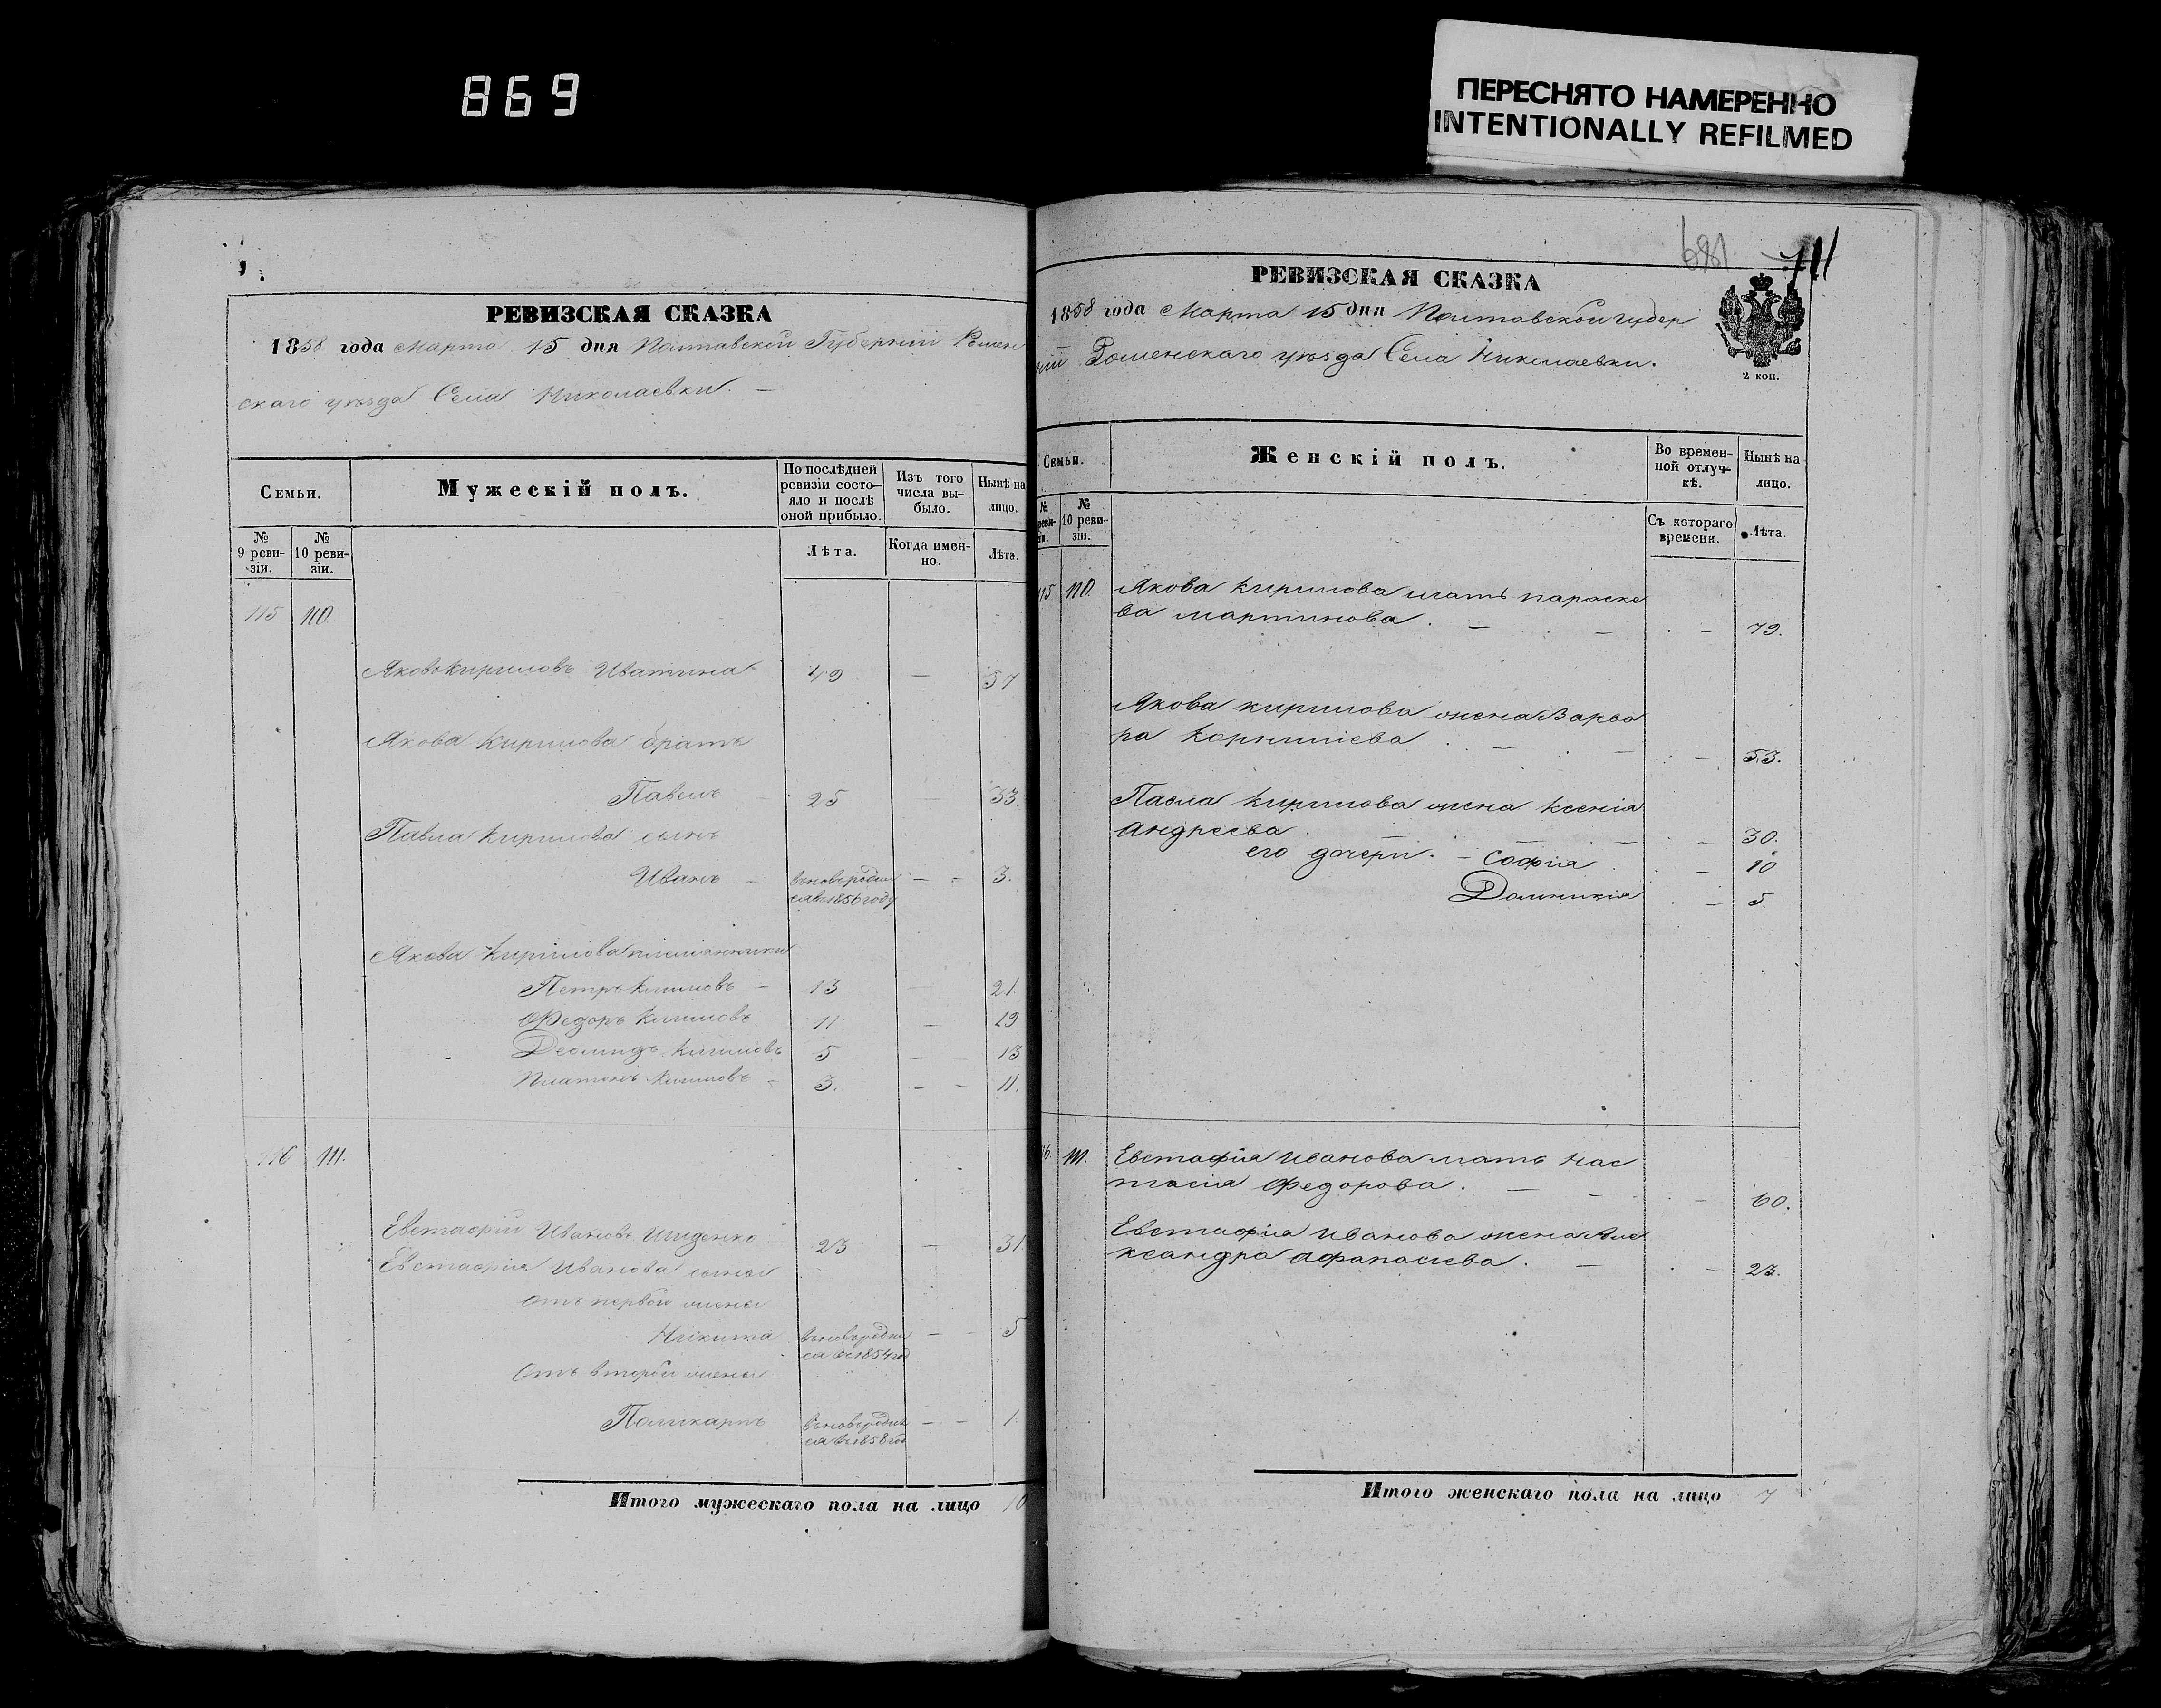 869
ПЕРЕСНЯТО НАМЕРЕННО
INTENTIONALLY REFILMED
РЕВИЗСКАЯ СКАЗКА
1858 года Марта 15 дня Полтавской Губернии Ромен
скаго уѣзда Села Николаевки. —
Семьи.
Мужескій полъ.
По послѣдней ревизіи состояло и послѣ оной прибыло.
Изъ того числа выбыло.
Нынѣ на лицо.
№ 9 ревизіи.
№ 10 ревизіи.
Лѣта.
Когда именно.
Лѣта.
115 110
Яковъ Кириловъ 49 — 57
Якова Кирилова братъ
Павелъ — 25 — 33.
Павла Кирилова сынъ
Иванъ — вновь родил — — 3.
ся въ 1856 году
Якова Кирилова племянники
Петръ Климовъ — 13 — 21.
Федоръ Климовъ 11 — 19
Климовъ 5 — 13
Платонъ Климовъ - 3. — - 11.
116 111.
Евстафій Ивановъ 23 — 31
Евстафія Иванова сыны
отъ первой жены
Никита вновь родил — - 5
ся въ 1854 год
отъ второй жены
Поликарпъ вновь родил — — 1.
ся въ 1858 год
Итого мужескаго пола на лицо 10
681 711
РЕВИЗСКАЯ СКАЗКА
1858 года Марта 15 дня Полтавской губер
ніи Роменскаго уѣзда Села Николаевки.
2 коп.
Семьи.
Женскій полъ.
Во временной отлучкѣ.
Нынѣ на лицо.
№ 10 ревизіи.
Съ котораго времени.
Лѣта.
115 110. Якова Кирилова мать Параске
ва Мартинова. — — 79.
Якова Кирилова жена Варва
ра Корнилiева . — — 53.
Павла Кирилова жена Ксенія
Андреева. — — 30.
его дочери. — Софія — 10
Домникія — 5.
116. 111. Евстафія Иванова мать Нас
тасія Федорова. — — 60.
Евстафія Иванова жена Але
ксандра Афанасіева. — — 23.
Итого женскаго пола на лицо 7